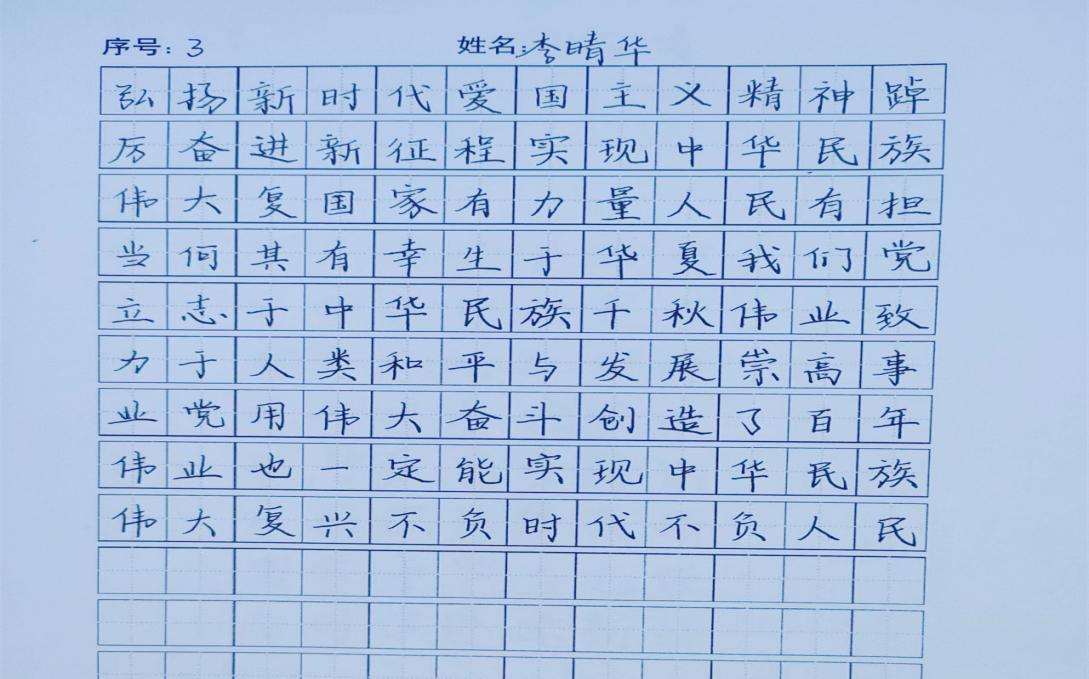 序号：3 姓名：李晴华
弘扬新时代爱国主义精神踔
厉奋进新征程实现中华民族
伟大复国家有力量人民有担
当何其有幸生于华夏我们党
立志于中华民族千秋伟业致
力于人类和平与发展崇高事
业党用伟大奋斗创造了百年
伟业也一定能实现中华民族
伟大复兴不负时代不负人民